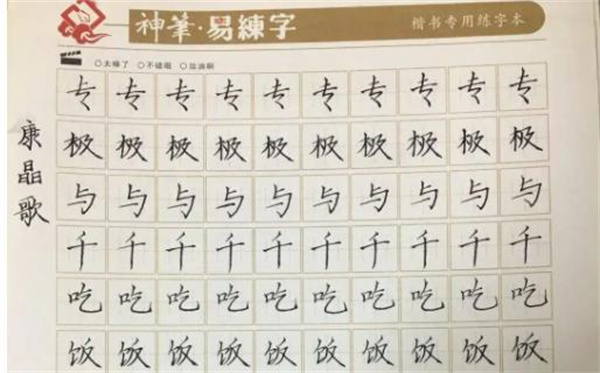 神筆·易練字
楷书专用练字本
○太棒了 ○不错哦 ○加油啊
康晶歌
专 专 专 专 专 专 专 专 专 专
极 极 极 极 极 极 极 极 极 极
与 与 与 与 与 与 与 与 与 与
千 千 千 千 千 千 千 千 千 千
吃 吃 吃 吃 吃 吃 吃 吃 吃 吃
饭 饭 饭 饭 饭 饭 饭 饭 饭 饭